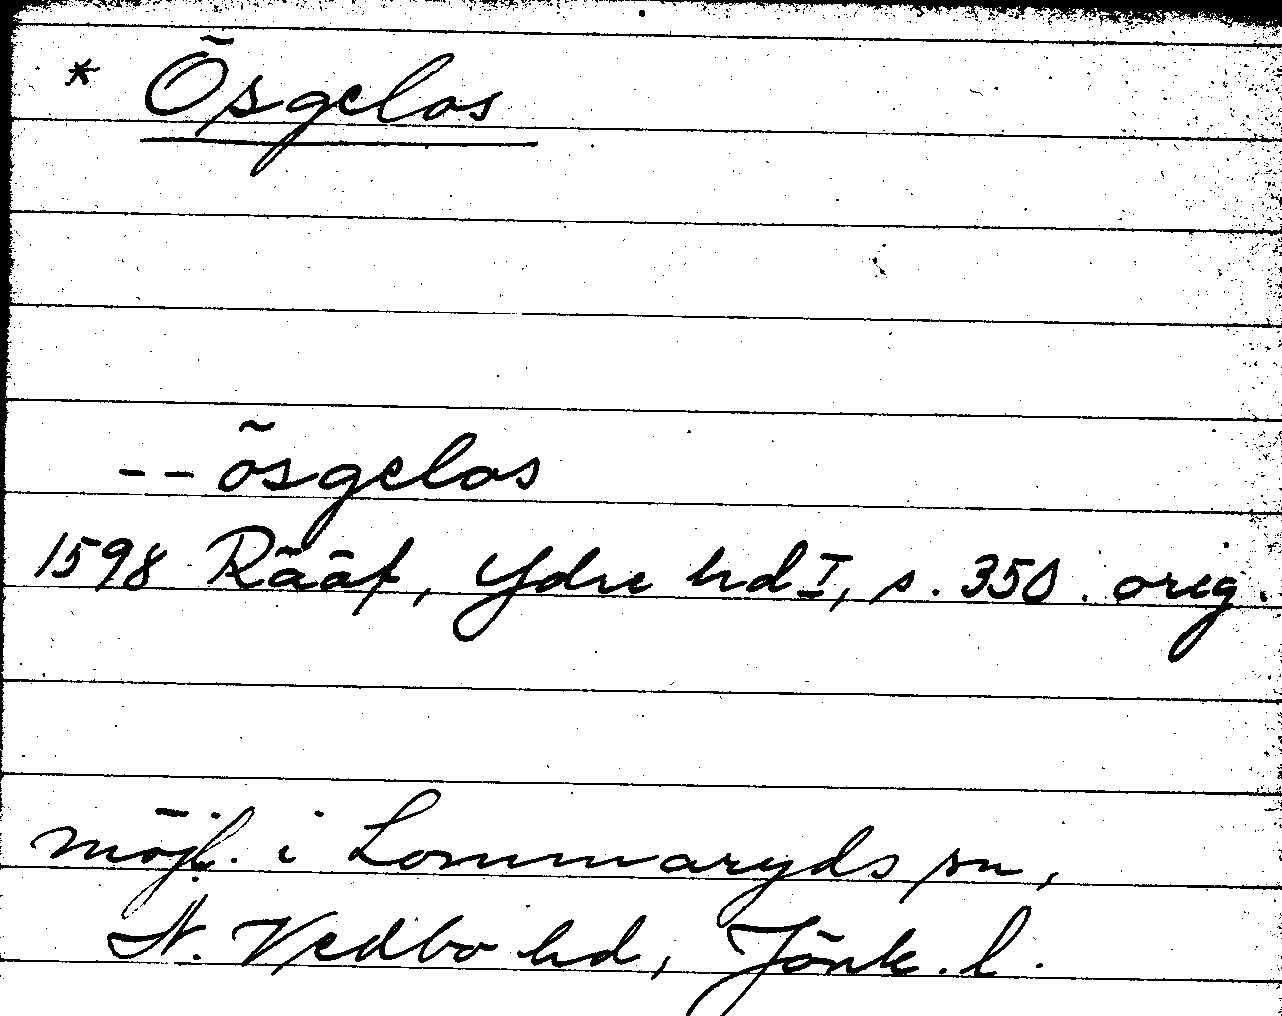 * Ösgelos
-- ösgelos
1598 Rääf, Ydre hd I, s. 350. orig.
möjl. i Lommaryds sn,
N. Vedbo hd, Jönk. l.